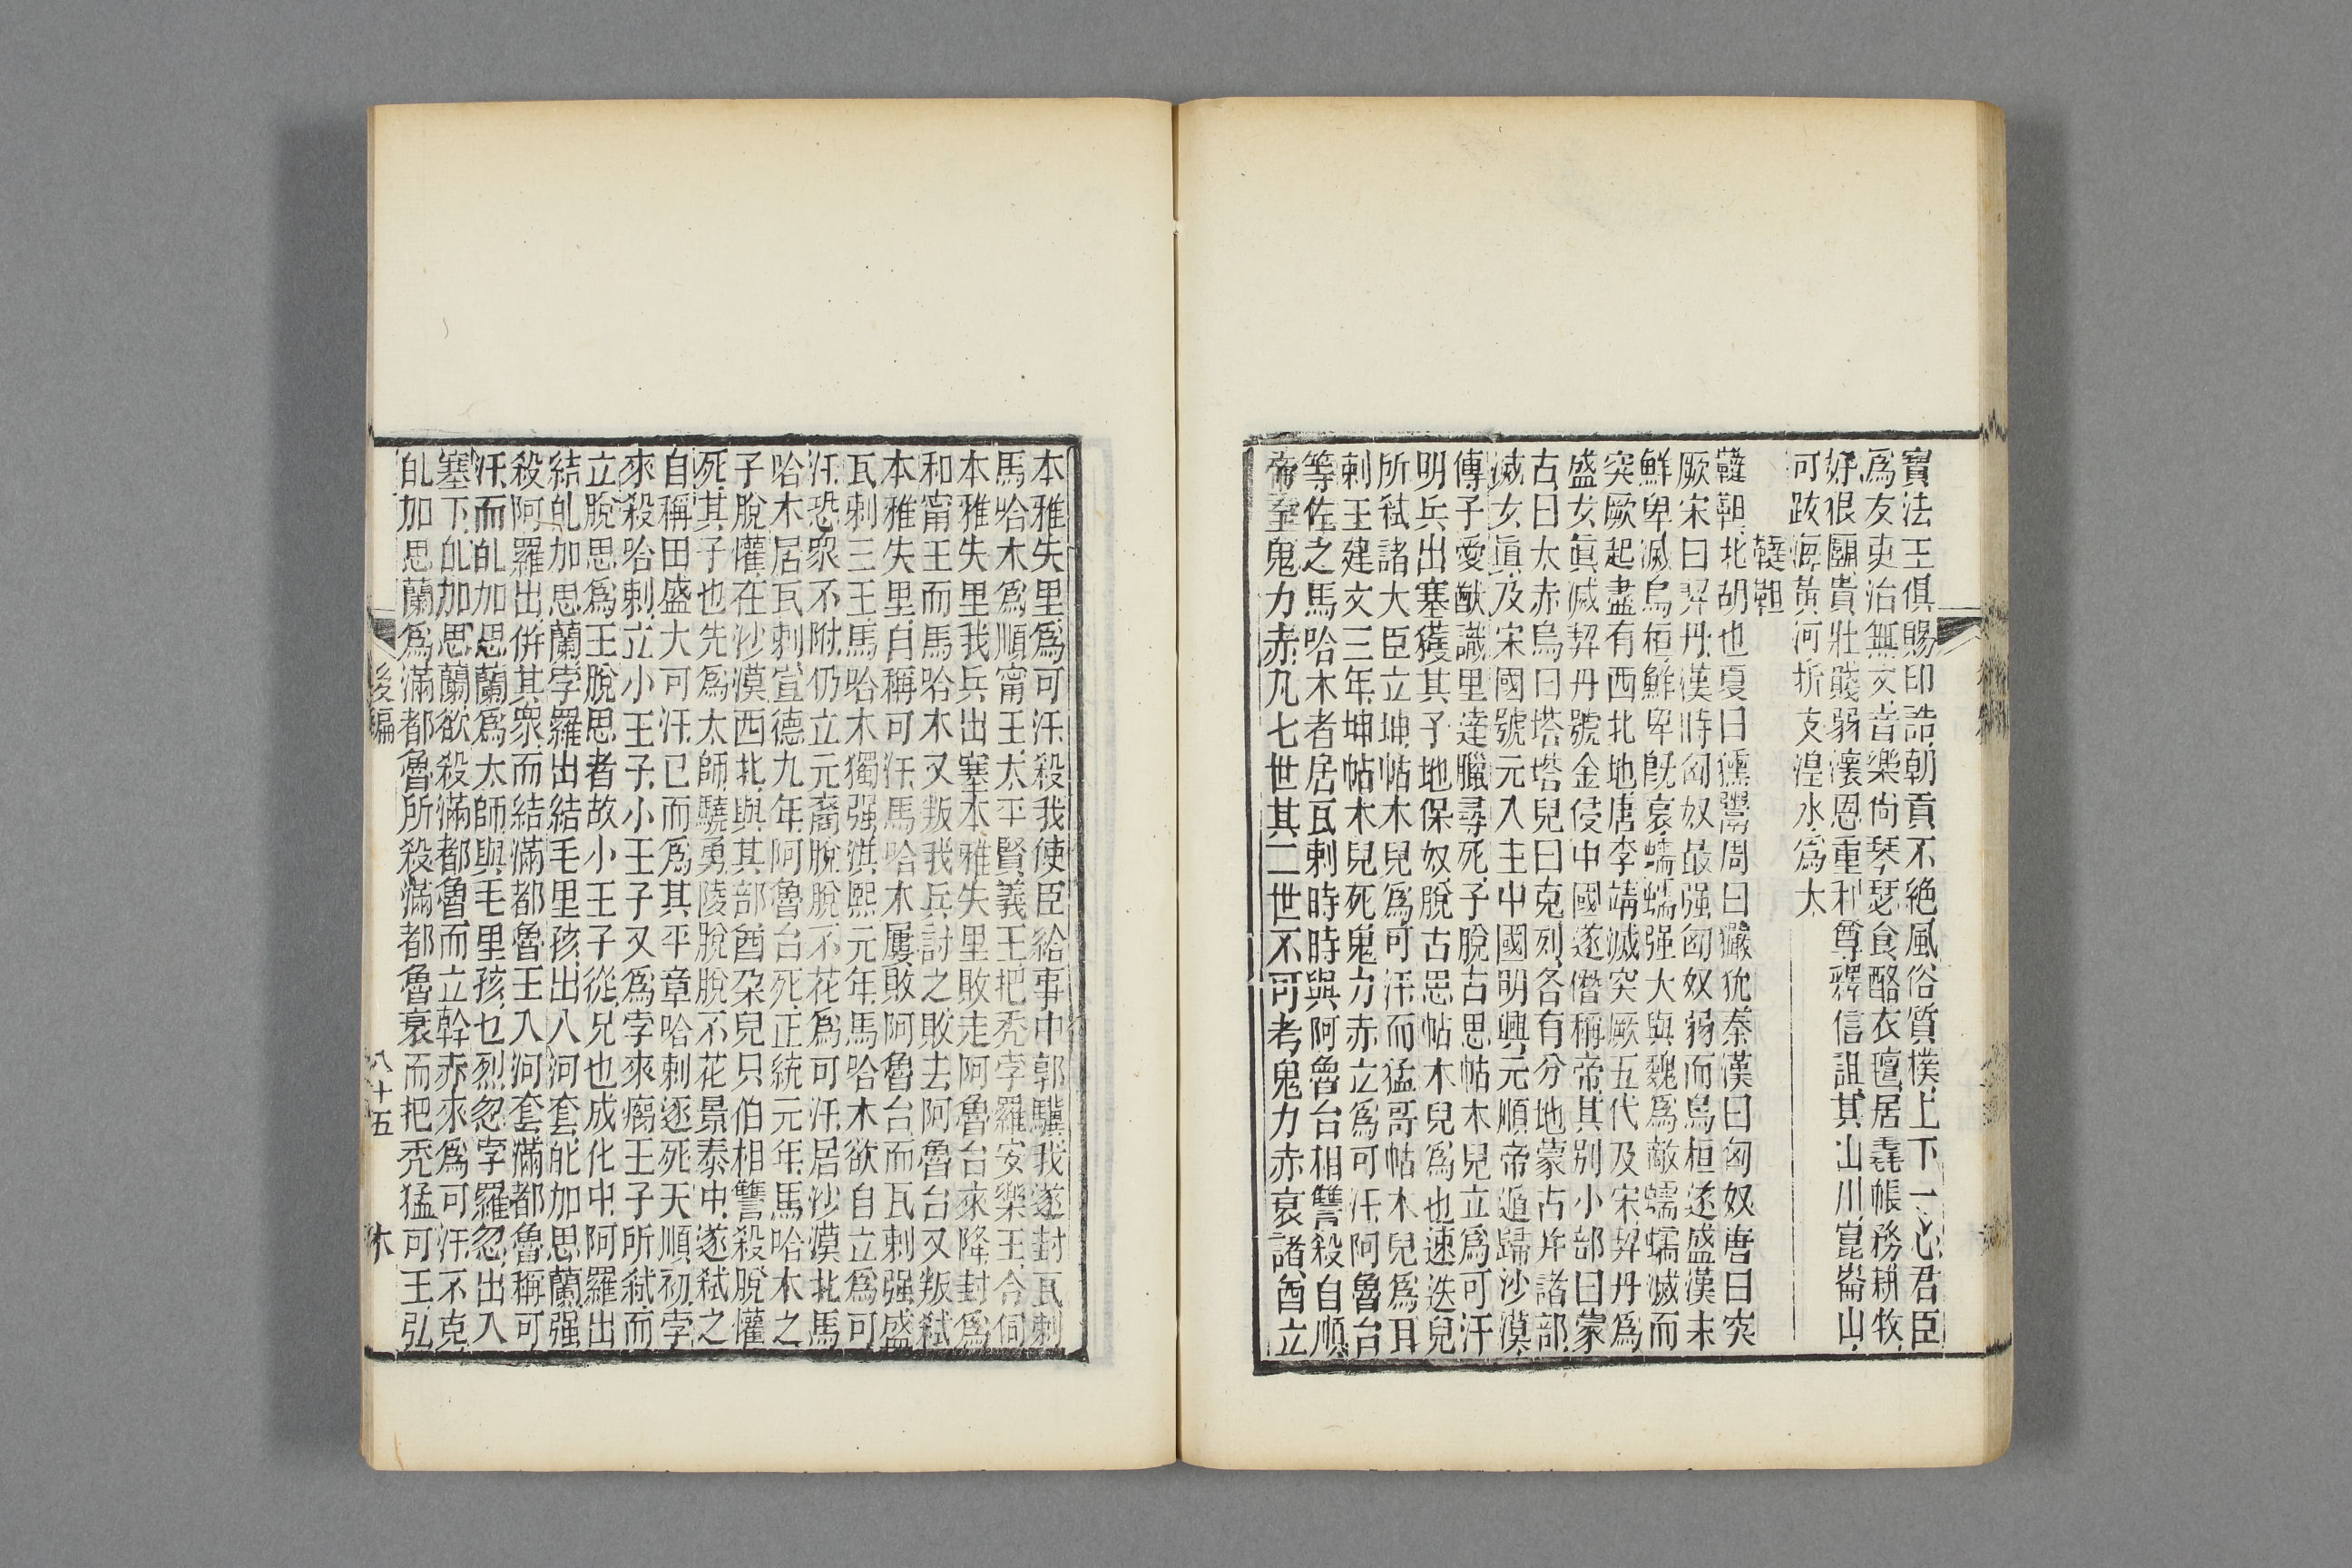 寶法王俱賜印誥朝貢不絶風俗質樸上下一心君臣
爲友吏治無文音樂尚琴瑟食酪衣氊居毳帳務耕牧
好很鬭貴壯賤弱瀼恩重利尊釋信詛其山川崑崙山
可跋海黃河折支湟水爲大
韃靼
韃靼北胡也夏曰獯鬻周曰玁狁秦漢曰匈奴唐曰突
厥宋曰契丹漢時匈奴最强匈奴弱而烏桓遂盛漢末
鮮卑滅烏桓鮮卑旣衰蠕蠕强大與魏爲敵蠕蠕滅而
突厥起盡有西北地唐李靖滅突厥五代及宋契丹爲
盛女眞滅契丹號金侵中國遂僭稱帝其别小部曰蒙
古曰太赤烏曰塔塔兒曰克列各有分地蒙古并諸部
滅女眞及宋國號元入主中國明興元順帝遁歸沙漠
傳子愛猷識里達臘尋死子脫古思帖木兒立爲可汗
明兵出塞獲其子地保奴脫古思帖木兒爲也速迭兒
所弒諸大臣立坤帖木兒爲可汗而猛哥帖木兒爲瓦
剌王建文三年坤帖木兒死鬼力赤立爲可汗阿魯台
等佐之馬哈木者居瓦剌時時與阿魯台相讐殺自順
帝至鬼力赤凡七世其二世不可考鬼力赤衰諸酋立
本雅失里爲可汗殺我使臣給事中郭驥我遂封瓦剌
馬哈木爲順甯王太平賢義王把秃孛羅安樂王合伺
本雅失里我兵出塞本雅失里敗走阿魯台來降封爲
和甯王而馬哈木又叛我兵討之敗去阿魯台又叛弒
本雅失里自稱可汗馬哈木屢敗阿魯台而瓦剌强盛
瓦剌三王馬哈木獨强洪熙元年馬哈木欲自立爲可
汗恐衆不附仍立元裔脫脫不花爲可汗居沙漠北馬
哈木居瓦剌宣德九年阿魯台死正統元年馬哈木之
子脫懽在沙漠西北與其部酋朶兒只伯相讐殺脫懽
死其子也先爲太師驍勇陵脫脫不花景泰中遂弒之
自稱田盛大可汗已而爲其平章哈剌逐死天順初孛
來殺哈剌立小王子小王子又爲孛來瘸王子所弒而
立脫思爲王脫思者故小王子從兄也成化中阿羅出
結癿加思蘭孛羅出結毛里孩出入河套能加思蘭强
殺阿羅出併其衆而結滿都魯王入河套滿都魯稱可
汗而癿加思蘭爲太師與毛里孩乜烈忽孛羅忽出入
塞下癿加思蘭欲殺滿都魯而立幹赤來爲可汗不克
癿加思蘭爲滿都魯所殺滿都魯衰而把秃猛可王弘
後編
八十五
木